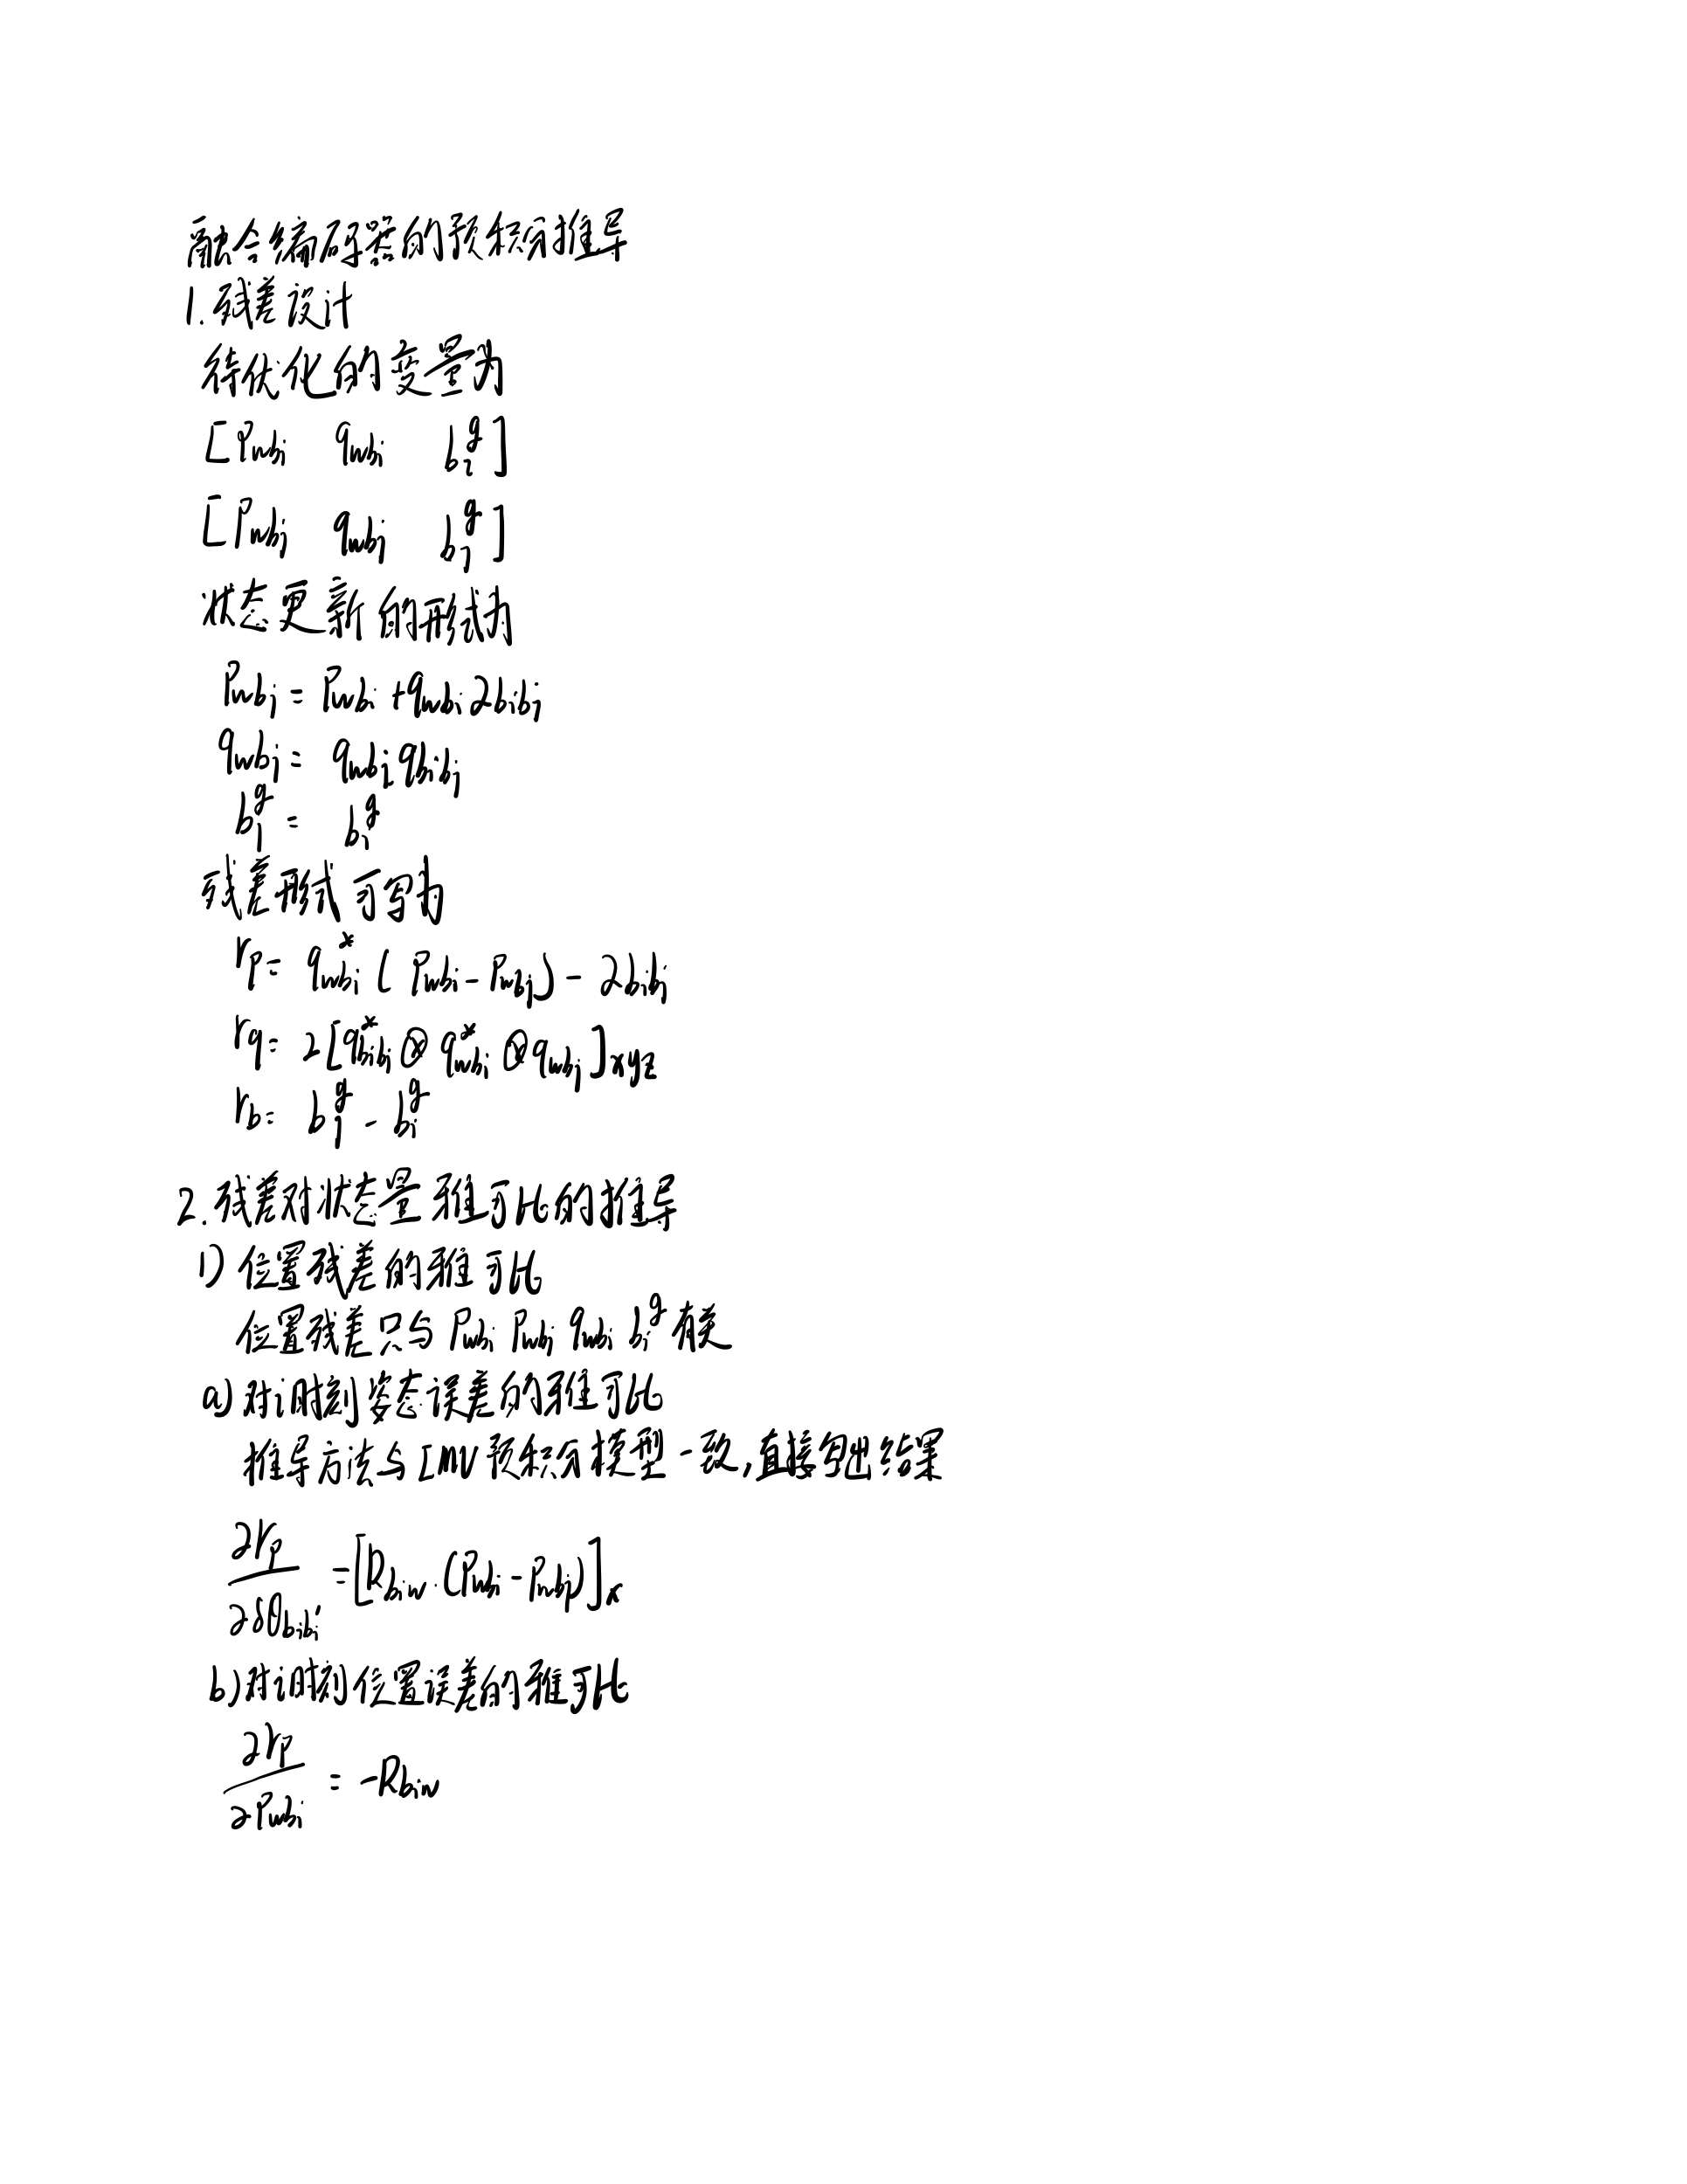 融合编码器的预积分推导
1.残差设计
待优化的变量为
[P_{wb_i} q_{wb_i} b_i^g]
[P_{wb_j} q_{wb_j} b_j^g]
状态更新的形式为
P_{wb_j} = P_{wb_i} + q_{wb_i} 2_{b_ib_j}
q_{wb_j} = q_{wb_i} q_{b_ib_j}
b_j^g = b_i^g
残差形式可写为
r_p = q_{wb_i}^* (P_{wb_i} - P_{wb_j}) - 2_{b_ib_j}
r_q = 2[q_{b_ib_j}^* ⊗ q_{wb_i}^* ⊗ q_{wb_j}]_{xyz}
r_b = b_j^g - b_i^g
2.残差对状态量雅可比的推导
1) 位置残差的雅可比
位置残差只与 P_{wb_i} P_{wb_j} q_{wb_i} b_i^g 有关
a) 对i时刻姿态误差的雅可比
推导方法与IMU预积分模型一致,直接写出结果
∂r_p / ∂δθ_{b_ib_i'} = [R_{b_iw} · (P_{wb_i} - P_{wb_j})]_×
b) 对i时刻位置误差的雅可比
∂r_p / ∂P_{wb_i} = -R_{b_iw}